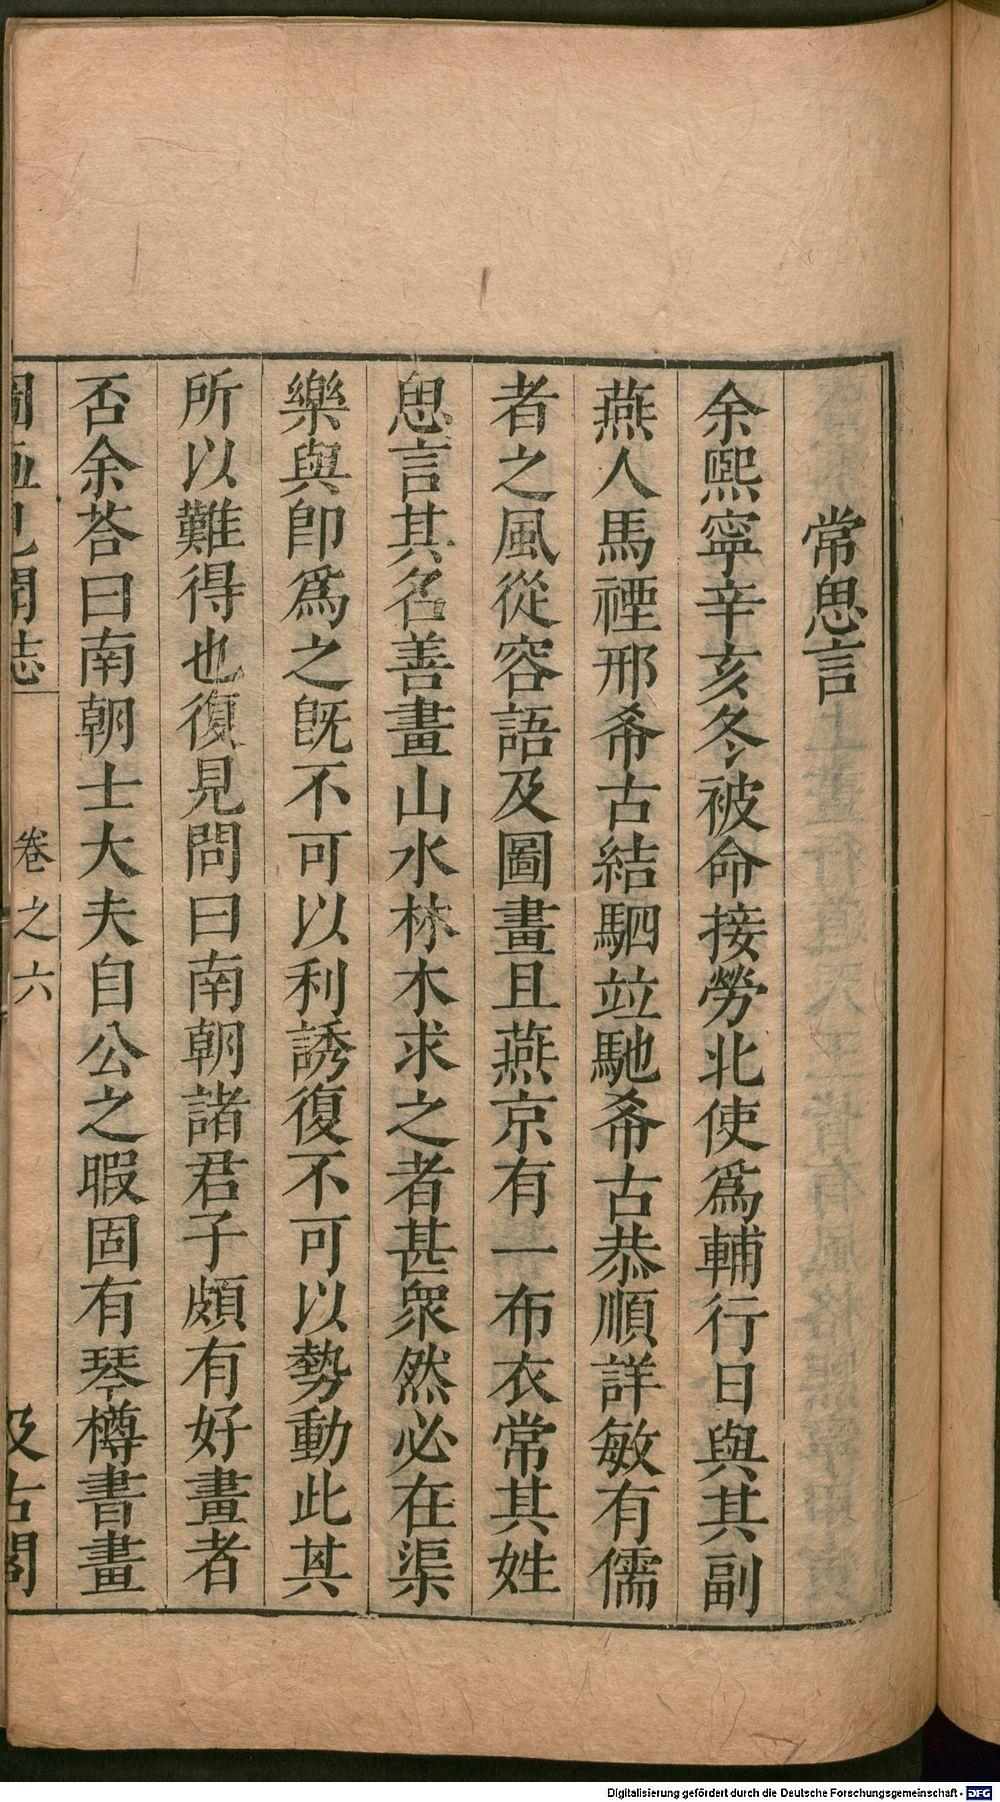 常思言
余熈寧辛亥冬被命接勞北使爲輔行日與其副
燕人馬禋邢希古結駟竝馳希古恭順詳敏有儒
者之風從容語及圖畫且燕京有一布衣常其姓
思言其名善畫山水林木求之者甚衆然必在渠
樂與卽爲之旣不可以利誘復不可以勢動此其
所以難得也復見問曰南朝諸君子頗有好畫者
否余荅曰南朝士大夫自公之暇固有琴樽書畫
圖畫見聞志 卷之六 汲古閣
Digitalisierung gefördert durch die Deutsche Forschungsgemeinschaft - DFG